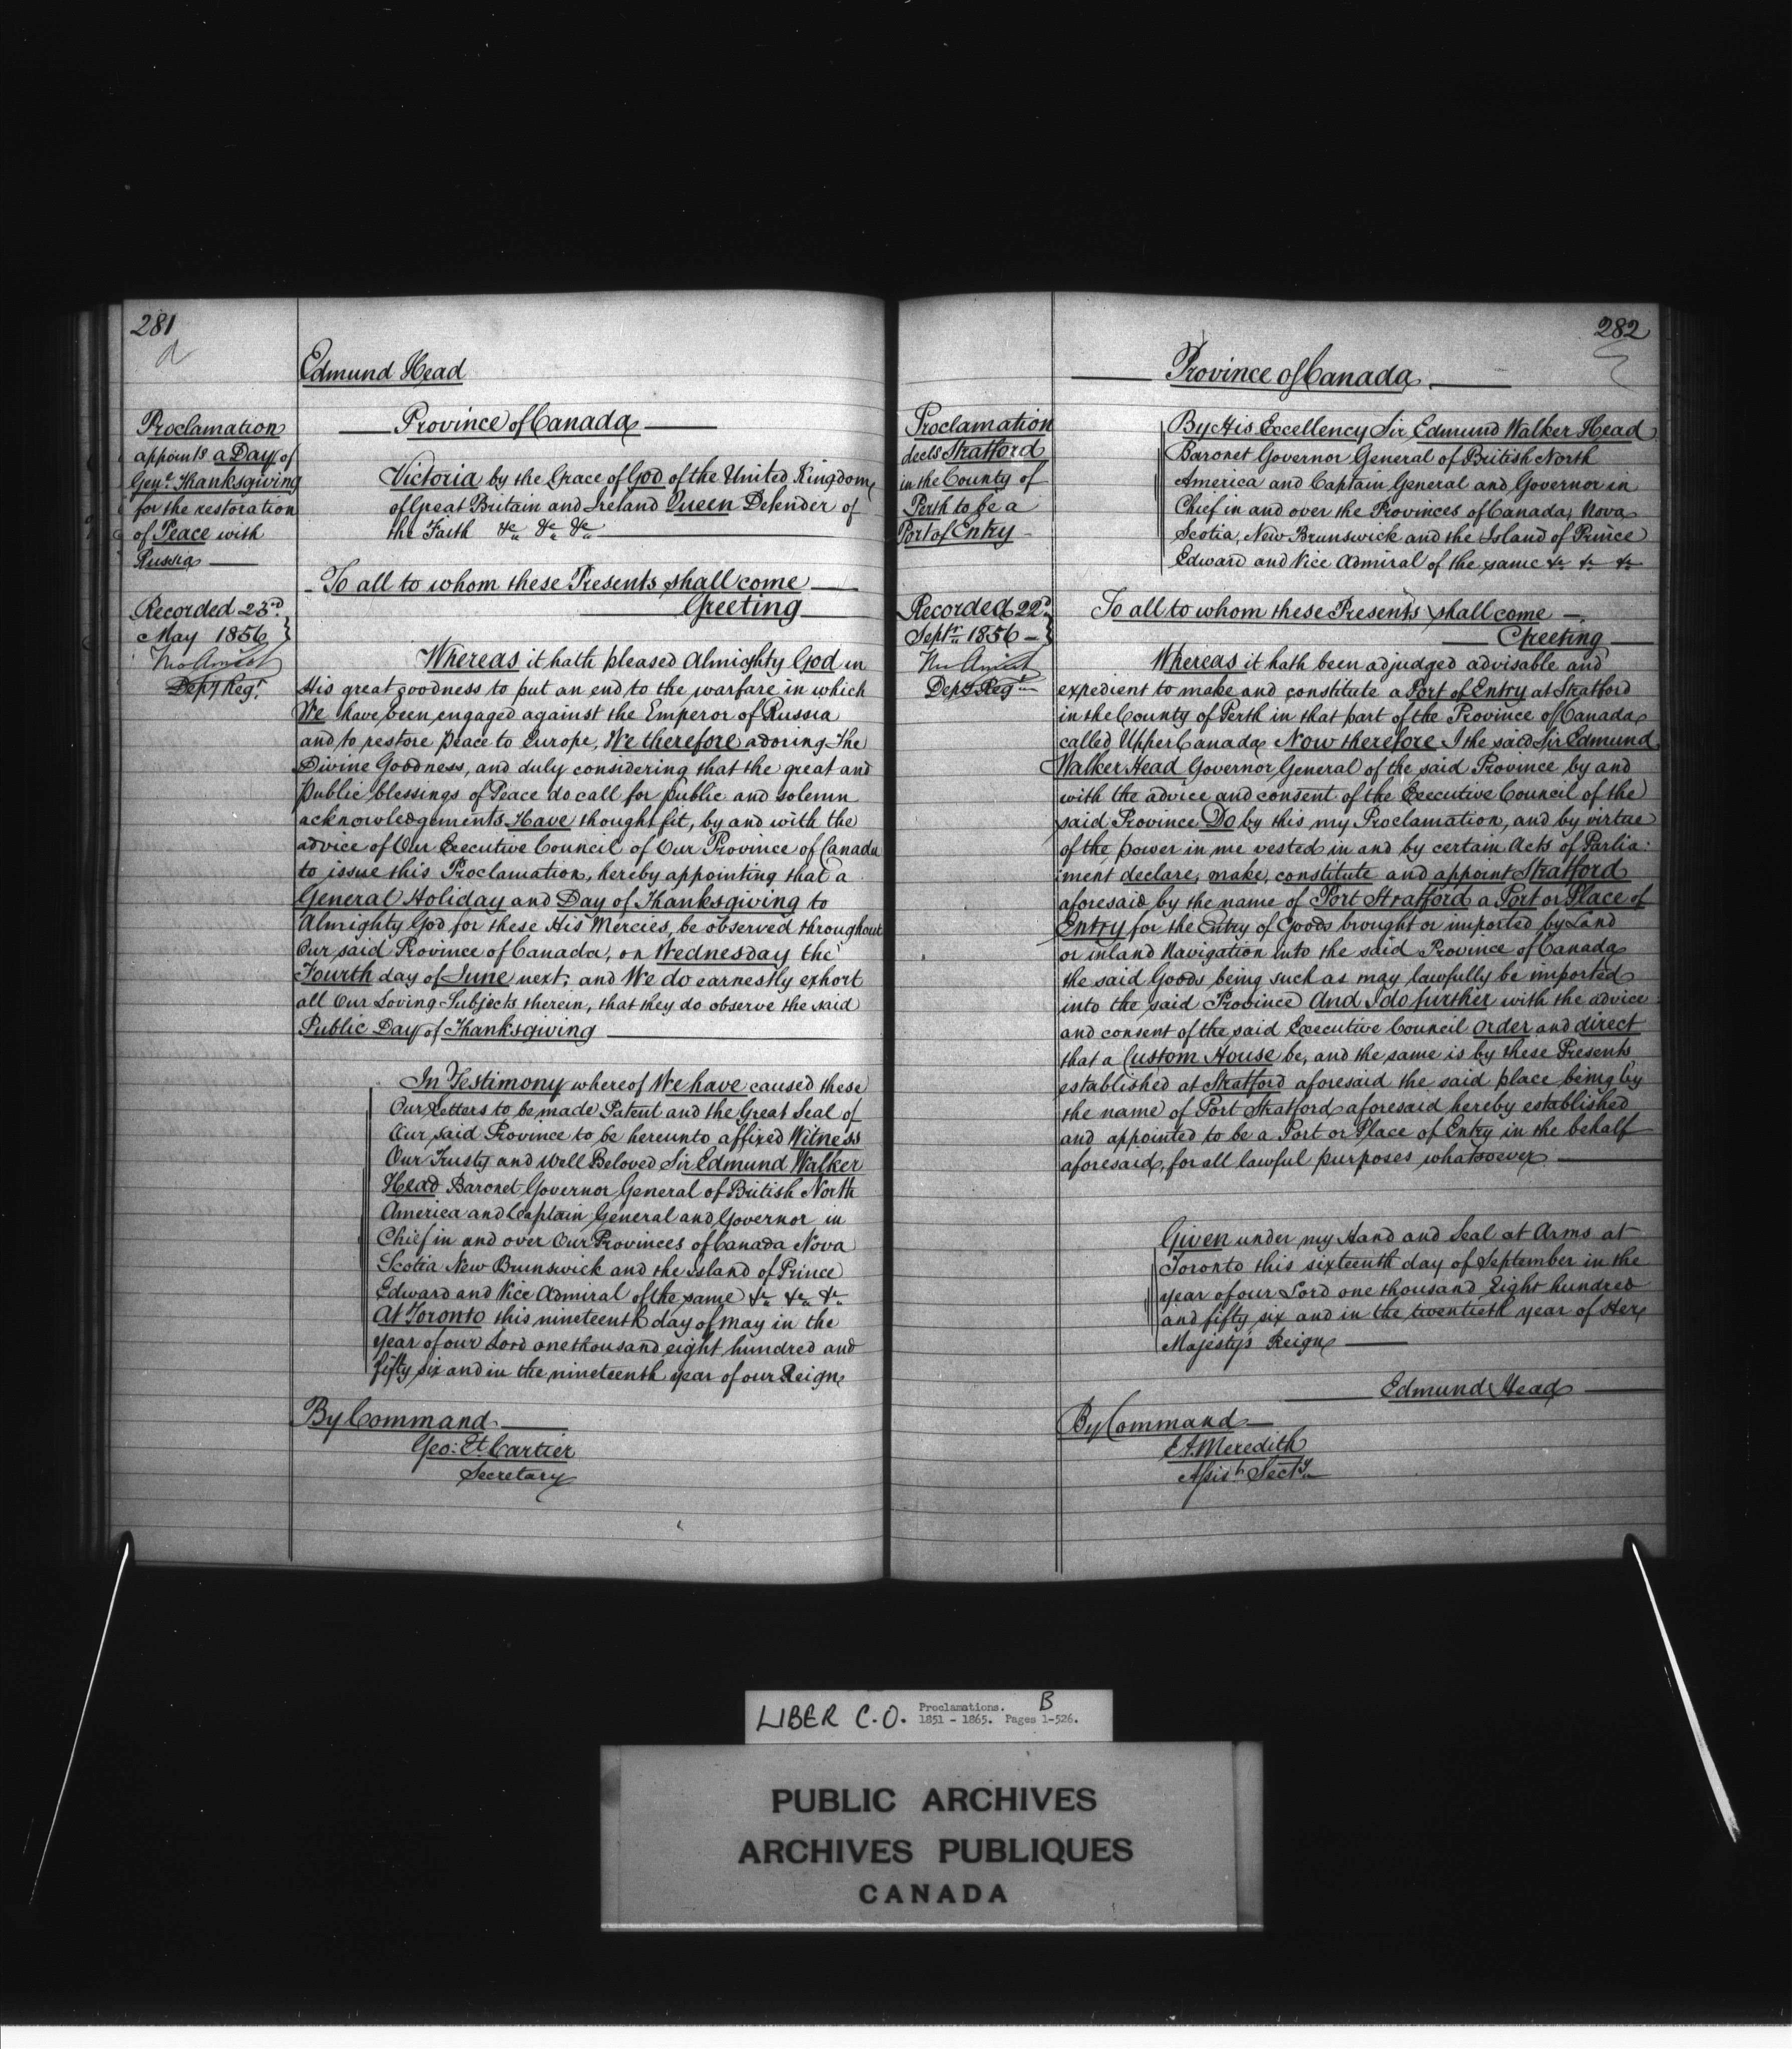 281
Edmund Head
Proclamation
appoints a Day of
Genl. Thanksgiving
for the restoration
of Peace with
Russia
Recorded 23rd.
May 1856
Depy Regr.
Province of Canada
Victoria by the Grace of God of the United Kingdom
of Great Britain and Ireland Queen Defender of
the Faith &c &c &c
To all to whom these Presents shall come
Greeting
Whereas it hath pleased Almighty God in
His great goodness to put an end to the warfare in which
We have been engaged against the Emperor of Russia
and to restore peace to Europe, We therefore adoring the
Divine Goodness, and duly considering that the great and
public blessings of Peace do call for public and solemn
acknowledgements Have thought fit, by and with the
advice of Our Executive Council of Our Province of Canada
to issue this Proclamation, hereby appointing that a
General Holiday and Day of Thanksgiving to
Almighty God for these His Mercies, be observed throughout
Our said Province of Canada, on Wednesday the
Fourth day of June next; and We do earnestly exhort
all Our Loving Subjects therein, that they do observe the said
Public Day of Thanksgiving
In Testimony whereof We have caused these
Our Letters to be made Patent and the Great Seal of
Our said Province to be hereunto affixed Witness
Our Trusty and Well Beloved Sir Edmund Walker
Head Baronet Governor General of British North
America and Captain General and Governor in
Chief in and over Our Provinces of Canada Nova
Scotia New Brunswick and the Island of Prince
Edward and Vice Admiral of the same &c &c &c
At Toronto this nineteenth day of May in the
year of our Lord one thousand eight hundred and
fifty six and in the nineteenth year of our Reign
By Command
Geo: Et. Cartier
Secretary
282
Province of Canada
Proclamation
decls Stratford
in the County of
Perth to be a
Port of Entry
Recorded 22d
Septr 1856
Depy Regr
By His Excellency Sir Edmund Walker Head
Baronet Governor General of British North
America and Captain General and Governor in
Chief in and over the Provinces of Canada, Nova
Scotia, New Brunswick and the Island of Prince
Edward and Vice Admiral of the same &c &c &c
To all to whom these Presents shall come
Greeting
Whereas it hath been adjudged advisable and
expedient to make and constitute a Port of Entry at Stratford
in the County of Perth in that part of the Province of Canada
called Upper Canada Now therefore I the said Sir Edmund
Walker Head Governor General of the said Province by and
with the advice and consent of the Executive Council of the
said Province Do by this my Proclamation, and by virtue
of the power in me vested in and by certain Acts of Parlia-
ment declare, make, constitute and appoint Stratford
aforesaid by the name of Port Stratford a Port or Place of
Entry for the Entry of Goods brought or imported by Land
or inland Navigation into the said Province of Canada
the said Goods being such as may lawfully be imported
into the said Province And I do further with the advice
and consent of the said Executive Council order and direct
that a Custom House be, and the same is by these Presents
established at Stratford aforesaid the said place being by
the name of Port Stratford aforesaid hereby established
and appointed to be a Port or Place of Entry in the behalf
aforesaid, for all lawful purposes whatsoever
Given under my Hand and Seal at Arms at
Toronto this sixteenth day of September in the
year of our Lord one thousand Eight hundred
and fifty six and in the twentieth year of Her
Majesty's Reign
Edmund Head
By Command
E A Meredith
Assist Secty
LIBER C.O. Proclamations. B
1851 - 1865. Pages 1-526.
PUBLIC ARCHIVES
ARCHIVES PUBLIQUES
CANADA